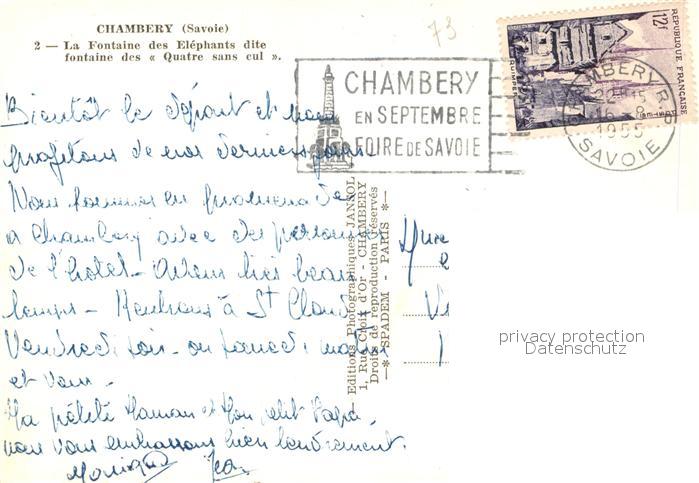 CHAMBERY (Savoie)
2 — La Fontaine des Eléphants dite
fontaine des « Quatre sans cul ».
73
12F
REPUBLIQUE FRANÇAISE
QUIMPER
CHAMBERY
EN SEPTEMBRE
FOIRE DE SAVOIE
CHAMBERY R.P.
16-8
1955
SAVOIE
Bientôt le départ et nous
profitons de nos derniers jours.
Nous sommes en promenade
a Chambery avec des personnes
de l'hotel. Avons très beau
temps. Rentrons à St Claude
Vendredi soir. ou samedi matin
et vous.
Ma petite Maman et Mon petit Papa,
nous vous embrassons bien tendrement.
Monique Jean
Editions Photographiques JANSOL
1, Rue Croix d'Or - CHAMBERY
Droits de reproduction réservés
—* SPADEM - PARIS *—
privacy protection
Datenschutz